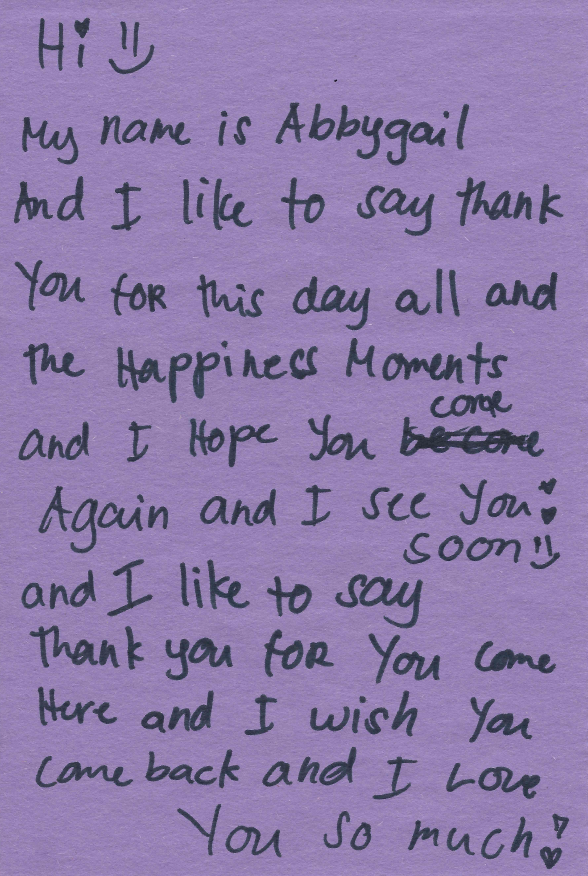 Hi
My name is Abbygail
And I like to say thank
You for this day all and
the Happiness Moments
and I Hope You become come
Again and I see You
soon
and I like to say
thank you for You come
Here and I wish You
come back and I Love
You so much!